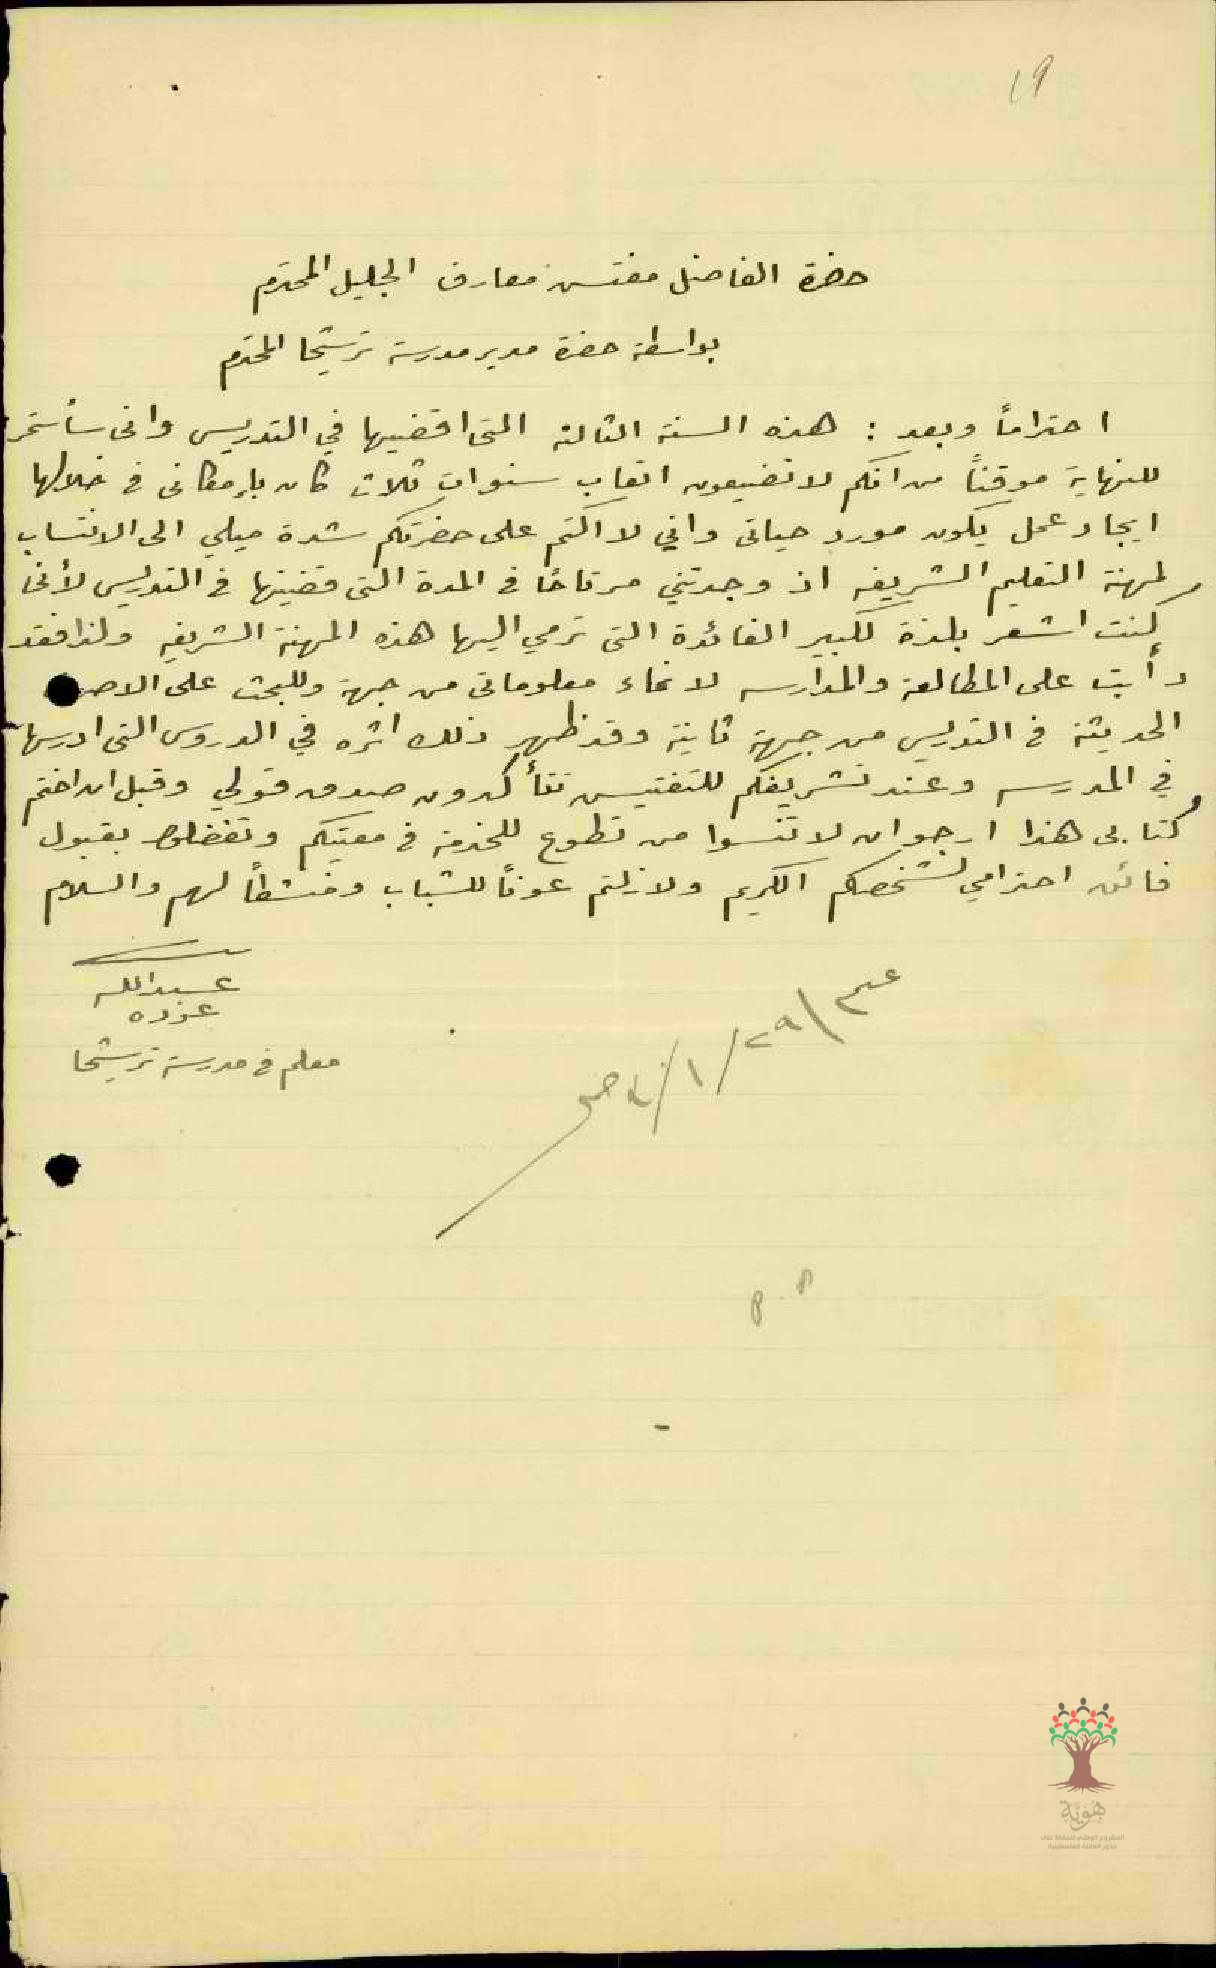 ١٩
حضرة الفاضل مفتش معارف الجليل المحترم
بواسطة حضرة مدير مدرسة ترشيحا المحترم
احتراماً وبعد : هذه السنة الثالثة التي اقضيها في التدريس واني سأستمر
للنهاية موقناً من انكم لا تضيعون اتعاب سنوات ثلاث كان بإمكاني في خلالها
ايجاد عمل يكون مورد حياتي واني لا اكتم على حضرتكم شدة ميلي الى الانتساب
لمهنة التعليم الشريفه اذ وجدتني مرتاحًا في المدة التي قضيتها في التدريس لأنني
كنت اشعر بلذة لكبير الفائدة التي ترمي اليها هذه المهنة الشريفه ولذا فقد
دأبت على المطالعة والمدارسه لانماء معلوماتي من جهة وللبحث على
الحديثة في التدريس من جهة ثانية وقد ظهر ذلك اثره في الدروس التي ادرسها
في المدرسه وعند تشريفكم للتفتيش تتأكدون صدق قولي وقبل ان اختم
كتابي هذا ارجو ان لا تنسوا من تطوع للخدمة في معيتكم وتفضلوا بقبول
فائق احترامي لشخصكم الكريم ولا زلتم عوناً للشباب ومنشطاً لهم والسلام
عبدالله
عوده
معلم في مدرسة ترشيحا
٢٩/١/
هُوِيَّة
المشروع الوطني للحفاظ على
جذور العائلة الفلسطينية